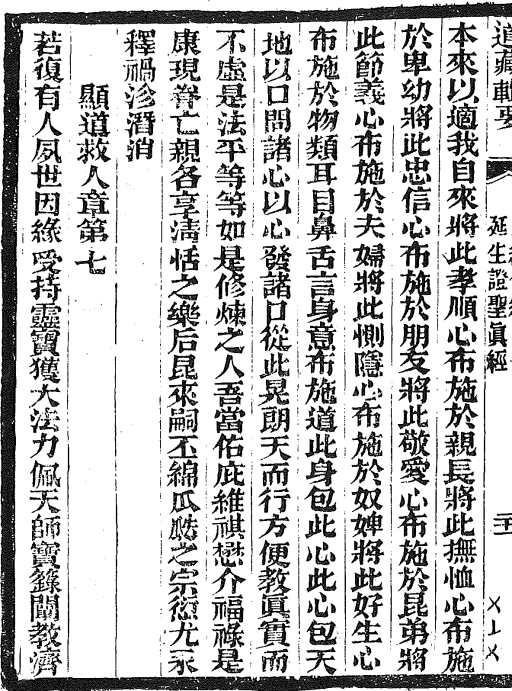 道藏輯要
延生證聖眞經
五
本來以適我自來將此孝順心布施於親長將此撫恤心布施
於卑幼將此忠信心布施於朋友將此敬愛心布施於昆弟將
此節義心布施於夫婦將此惻隱心布施於奴婢將此好生心
布施於物類耳目鼻舌言身意布施道此身包此心此心包天
地以口問諸心以心發諸口從此晃朗天而行方便教眞實而
不虛是法平等等如是修煉之人吾當佑庇維祺懋介福祿是
康現眷亡親各享清恬之樂后昆來嗣丕綿瓜瓞之宗愆尤永
釋禍沴潛消
顯道救人章第七
若復有人夙世因緣受持靈寶獲大法力佩天師寶籙闡教濟